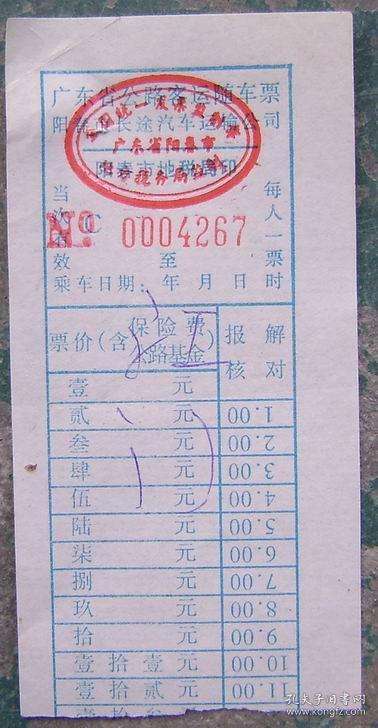 广东省公路客运随车票
阳春市长途汽车运输公司
全国统一发票监制章
广东省阳春市
税务局监制
阳春市地税局印
当次有效
每人一票
№ C 0004267
至
乘车日期: 年 月 日 时
票价(含保险费公路基金)
报核
解对
壹 元
贰 元 1.00
叁 元 2.00
肆 元 3.00
伍 元 4.00
陆 元 5.00
柒 元 6.00
捌 元 7.00
玖 元 8.00
拾 元 9.00
壹拾壹元 10.00
壹拾贰元 11.00
孔夫子旧书网